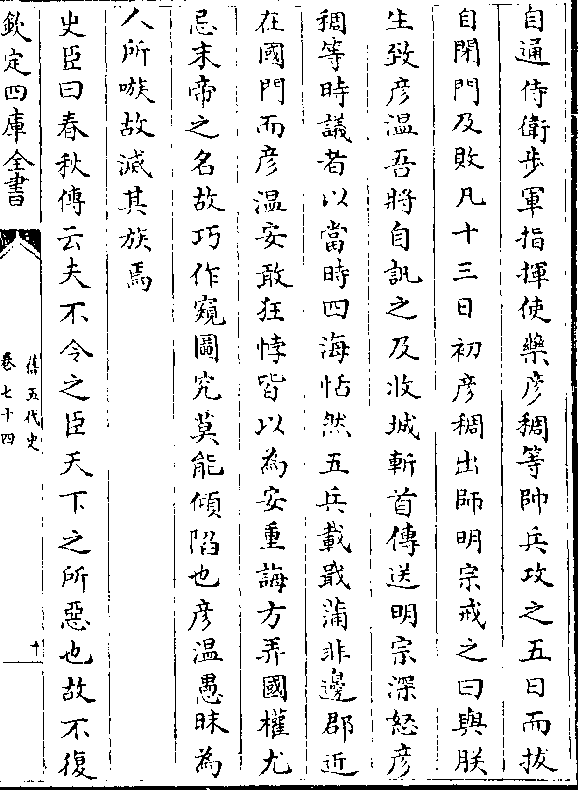 自通侍衛步軍指揮使藥彦稠等帥兵攻之五日而拔
自閉門及敗凡十三日初彦稠出師明宗戒之曰與朕
生致彦温吾將自訊之及收城斬首傳送明宗深怒彦
稠等時議者以當時四海恬然五兵載戢蒲非邊郡近
在國門而彦温安敢狂悖皆以為安重誨方弄國權尤
忌末帝之名故巧作窺圖究莫能傾陷也彦温愚昧為
人所嗾故滅其族焉
史臣曰春秋傳云夫不令之臣天下之所惡也故不復
欽定四庫全書
舊五代史
卷七十四
十